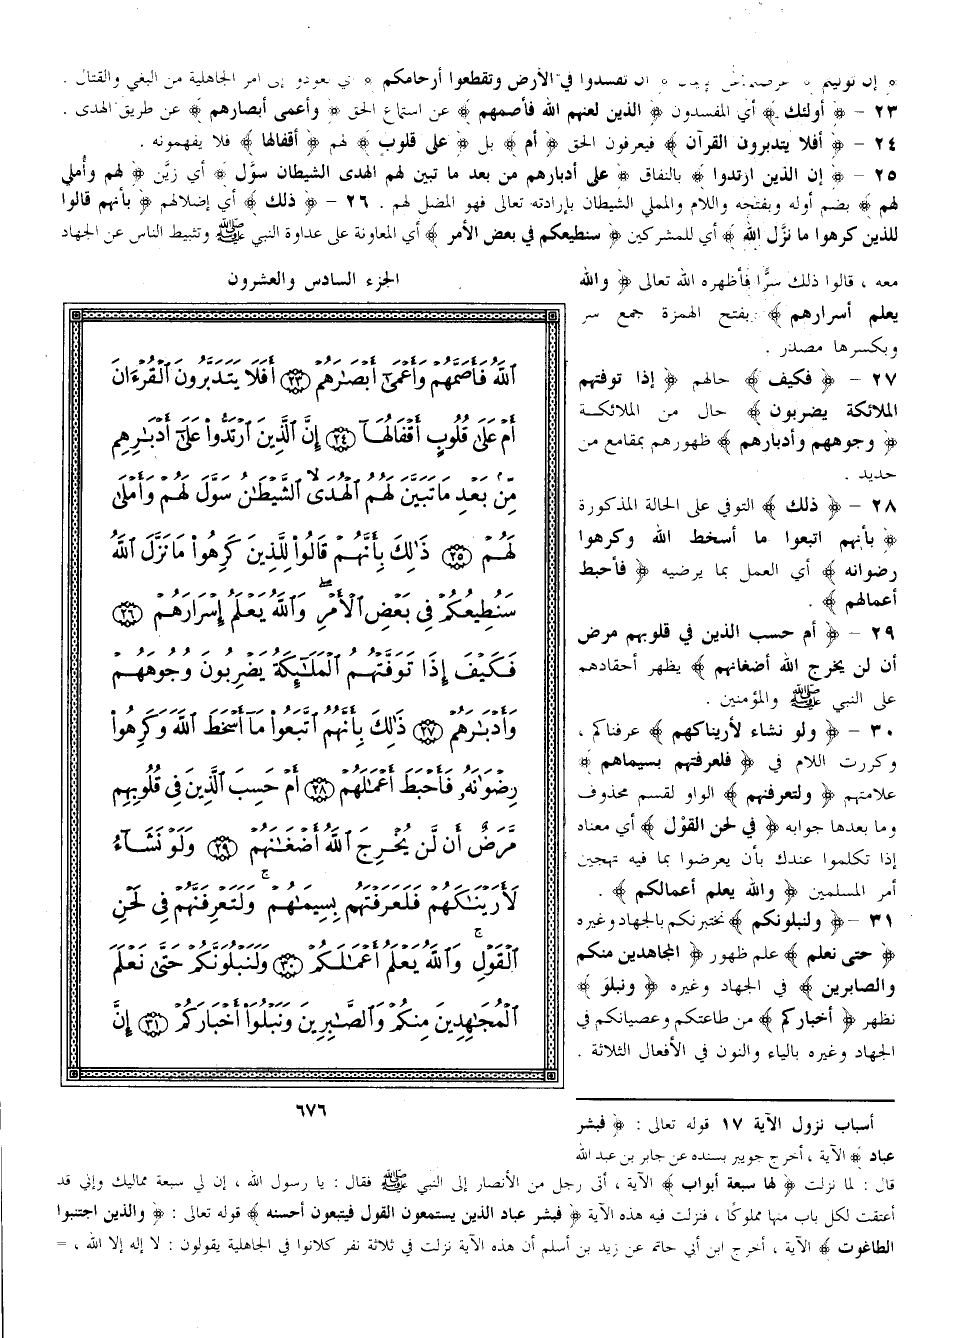 ﴿ إن توليتم ﴾ أن تفسدوا في الأرض وتقطعوا أرحامكم ﴾ أي تعودوا إلى أمر الجاهلية من البغي والقتال .
٢٣ - ﴿ أولئك ﴾ أي المفسدون ﴿ الذين لعنهم الله فأصمهم ﴾ عن استماع الحق ﴿ وأعمى أبصارهم ﴾ عن طريق الهدى .
٢٤ - ﴿ أفلا يتدبرون القرآن ﴾ فيعرفون الحق ﴿ أم ﴾ بل ﴿ على قلوب ﴾ لهم ﴿ أقفالها ﴾ فلا يفهمونه .
٢٥ - ﴿ إن الذين ارتدوا ﴾ بالنفاق ﴿ على أدبارهم من بعد ما تبين لهم الهدى الشيطان سوَّل ﴾ أي زيَّن ﴿ لهم وأُملي
لهم ﴾ بضم أوله وبفتحه واللام والمملي الشيطان بإرادته تعالى فهو المضل لهم . ٢٦ - ﴿ ذلك ﴾ أي إضلالهم ﴿ بأنهم قالوا
للذين كرهوا ما نزَّل الله ﴾ أي للمشركين ﴿ سنطيعكم في بعض الأمر ﴾ أي المعاونة على عداوة النبي ﷺ وتثبيط الناس عن الجهاد
معه ، قالوا ذلك سرًّا فأظهره الله تعالى ﴿ والله
يعلم أسرارهم ﴾ بفتح الهمزة جمع سر
وبكسرها مصدر .
٢٧ - ﴿ فكيف ﴾ حالهم ﴿ إذا توفتهم
الملائكة يضربون ﴾ حال من الملائكة
﴿ وجوههم وأدبارهم ﴾ ظهورهم بمقامع من
حديد .
٢٨ - ﴿ ذلك ﴾ التوفي على الحالة المذكورة
﴿ بأنهم اتبعوا ما أسخط الله وكرهوا
رضوانه ﴾ أي العمل بما يرضيه ﴿ فأحبط
أعمالهم ﴾ .
٢٩ - ﴿ أم حسب الذين في قلوبهم مرض
أن لن يخرج الله أضغانهم ﴾ يظهر أحقادهم
على النبي ﷺ والمؤمنين .
٣٠ - ﴿ ولو نشاء لأريناكهم ﴾ عرفناكم ،
وكررت اللام في ﴿ فلعرفتهم بسيماهم ﴾
علامتهم ﴿ ولتعرفنهم ﴾ الواو لقسم محذوف
وما بعدها جوابه ﴿ في لحن القوْل ﴾ أي معناه
إذا تكلموا عندك بأن يعرضوا بما فيه تهجين
أمر المسلمين ﴿ والله يعلم أعمالكم ﴾ .
٣١ - ﴿ ولنبلونكم ﴾ نختبرنكم بالجهاد وغيره
﴿ حتى نعلم ﴾ علم ظهور ﴿ المجاهدين منكم
والصابرين ﴾ في الجهاد وغيره ﴿ ونبلوَ ﴾
نظهر ﴿ أخباركم ﴾ من طاعتكم وعصيانكم في
الجهاد وغيره بالياء والنون في الأفعال الثلاثة .
الجزء السادس والعشرون
ٱللَّهُ فَأَصَمَّهُمْ وَأَعْمَىٰٓ أَبْصَٰرَهُمْ ﴿٢٣﴾ أَفَلَا يَتَدَبَّرُونَ ٱلْقُرْءَانَ
أَمْ عَلَىٰ قُلُوبٍ أَقْفَالُهَآ ﴿٢٤﴾ إِنَّ ٱلَّذِينَ ٱرْتَدُّوا۟ عَلَىٰٓ أَدْبَٰرِهِم
مِّنۢ بَعْدِ مَا تَبَيَّنَ لَهُمُ ٱلْهُدَى ۙ ٱلشَّيْطَٰنُ سَوَّلَ لَهُمْ وَأَمْلَىٰ
لَهُمْ ﴿٢٥﴾ ذَٰلِكَ بِأَنَّهُمْ قَالُوا۟ لِلَّذِينَ كَرِهُوا۟ مَا نَزَّلَ ٱللَّهُ
سَنُطِيعُكُمْ فِى بَعْضِ ٱلْأَمْرِ ۖ وَٱللَّهُ يَعْلَمُ إِسْرَارَهُمْ ﴿٢٦﴾
فَكَيْفَ إِذَا تَوَفَّتْهُمُ ٱلْمَلَٰٓئِكَةُ يَضْرِبُونَ وُجُوهَهُمْ
وَأَدْبَٰرَهُمْ ﴿٢٧﴾ ذَٰلِكَ بِأَنَّهُمُ ٱتَّبَعُوا۟ مَآ أَسْخَطَ ٱللَّهَ وَكَرِهُوا۟
رِضْوَٰنَهُۥ فَأَحْبَطَ أَعْمَٰلَهُمْ ﴿٢٨﴾ أَمْ حَسِبَ ٱلَّذِينَ فِى قُلُوبِهِم
مَّرَضٌ أَن لَّن يُخْرِجَ ٱللَّهُ أَضْغَٰنَهُمْ ﴿٢٩﴾ وَلَوْ نَشَآءُ
لَأَرَيْنَٰكَهُمْ فَلَعَرَفْتَهُم بِسِيمَٰهُمْ ۚ وَلَتَعْرِفَنَّهُمْ فِى لَحْنِ
ٱلْقَوْلِ ۚ وَٱللَّهُ يَعْلَمُ أَعْمَٰلَكُمْ ﴿٣٠﴾ وَلَنَبْلُوَنَّكُمْ حَتَّىٰ نَعْلَمَ
ٱلْمُجَٰهِدِينَ مِنكُمْ وَٱلصَّٰبِرِينَ وَنَبْلُوَا۟ أَخْبَارَكُمْ ﴿٣١﴾ إِنَّ
٦٧٦
أسباب نزول الآية ١٧ قوله تعالى : ﴿ فبشر
عباد ﴾ الآية ، أخرج جويبر بسنده عن جابر بن عبد الله
قال : لما نزلت ﴿ لها سبعة أبواب ﴾ الآية ، أتى رجل من الأنصار إلى النبي ﷺ فقال : يا رسول الله ، إن لي سبعة مماليك وإني قد
أعتقت لكل باب منها مملوكًا ، فنزلت فيه هذه الآية ﴿ فبشر عباد الذين يستمعون القول فيتبعون أحسنه ﴾ قوله تعالى : ﴿ والذين اجتنبوا
الطاغوت ﴾ الآية ، أخرج ابن أبي حاتم عن زيد بن أسلم أن هذه الآية نزلت في ثلاثة نفر كلانوا في الجاهلية يقولون : لا إله إلا الله ، =